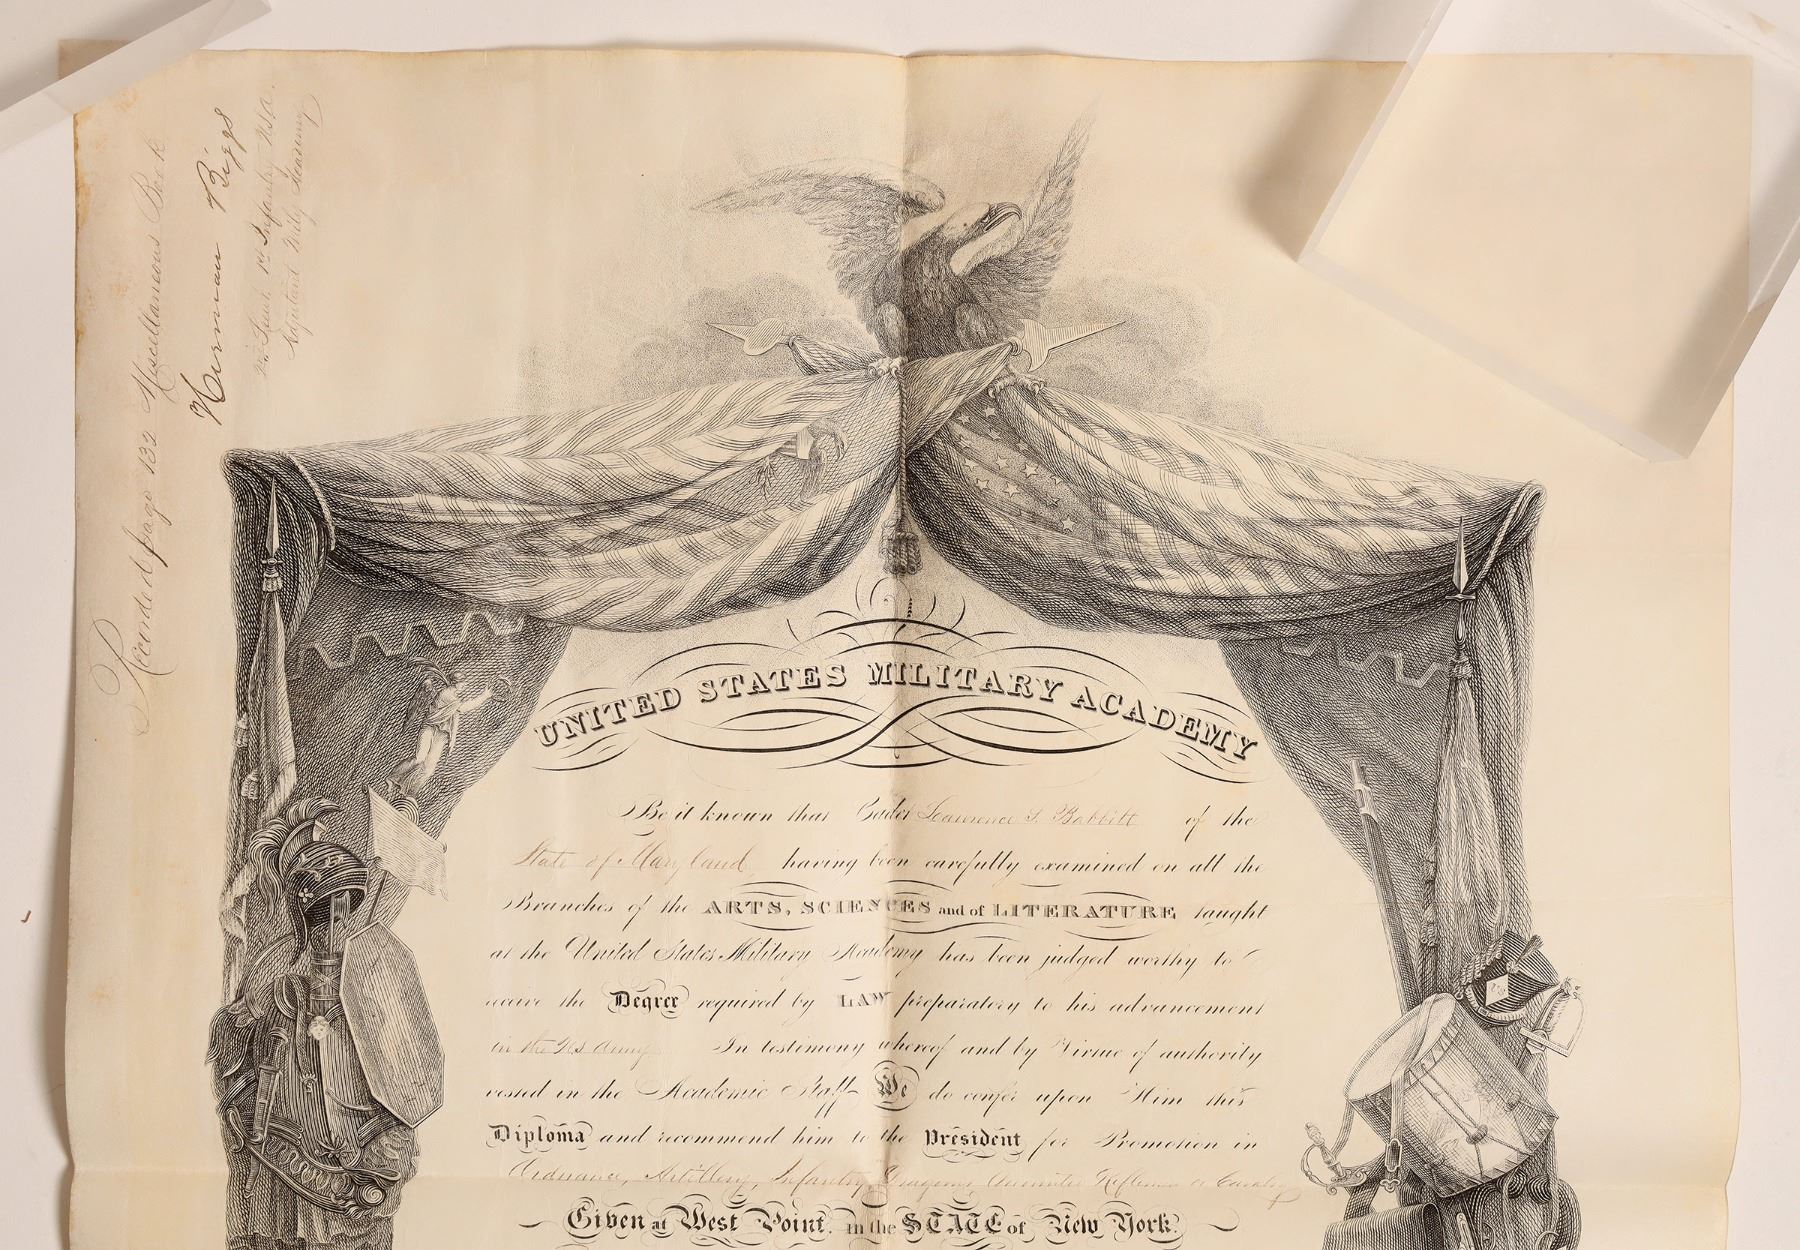 Recorded page 132 Miscellaneous Book
Herman Biggs
2d Lieut. 1st Infantry USA.
UNITED STATES MILITARY ACADEMY
Be it known that Cadet Lawrence S. Babbitt of the
State of Maryland, having been carefully examined on all the
Branches of the ARTS, SCIENCES and of LITERATURE taught
at the United States Military Academy has been judged worthy to
receive the Degree required by LAW preparatory to his advancement
in the US Army In testimony whereof and by Virtue of authority
vested in the Academic Staff We do confer upon Him this
Diploma and recommend him to the President for Promotion in
Ordnance, Artillery, Infantry, Dragoons Mounted Riflemen or Cavalry
Given at West Point, in the STATE of New York